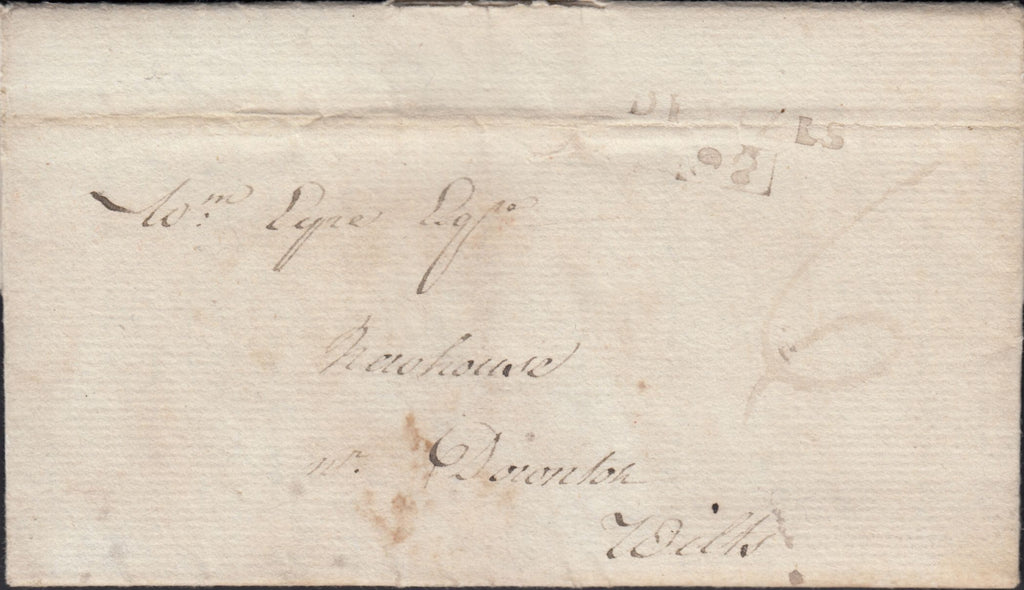 DE ZES
98
Wm. Eyre Esqr.
6
Newhouse
nr. Downton
Wilts